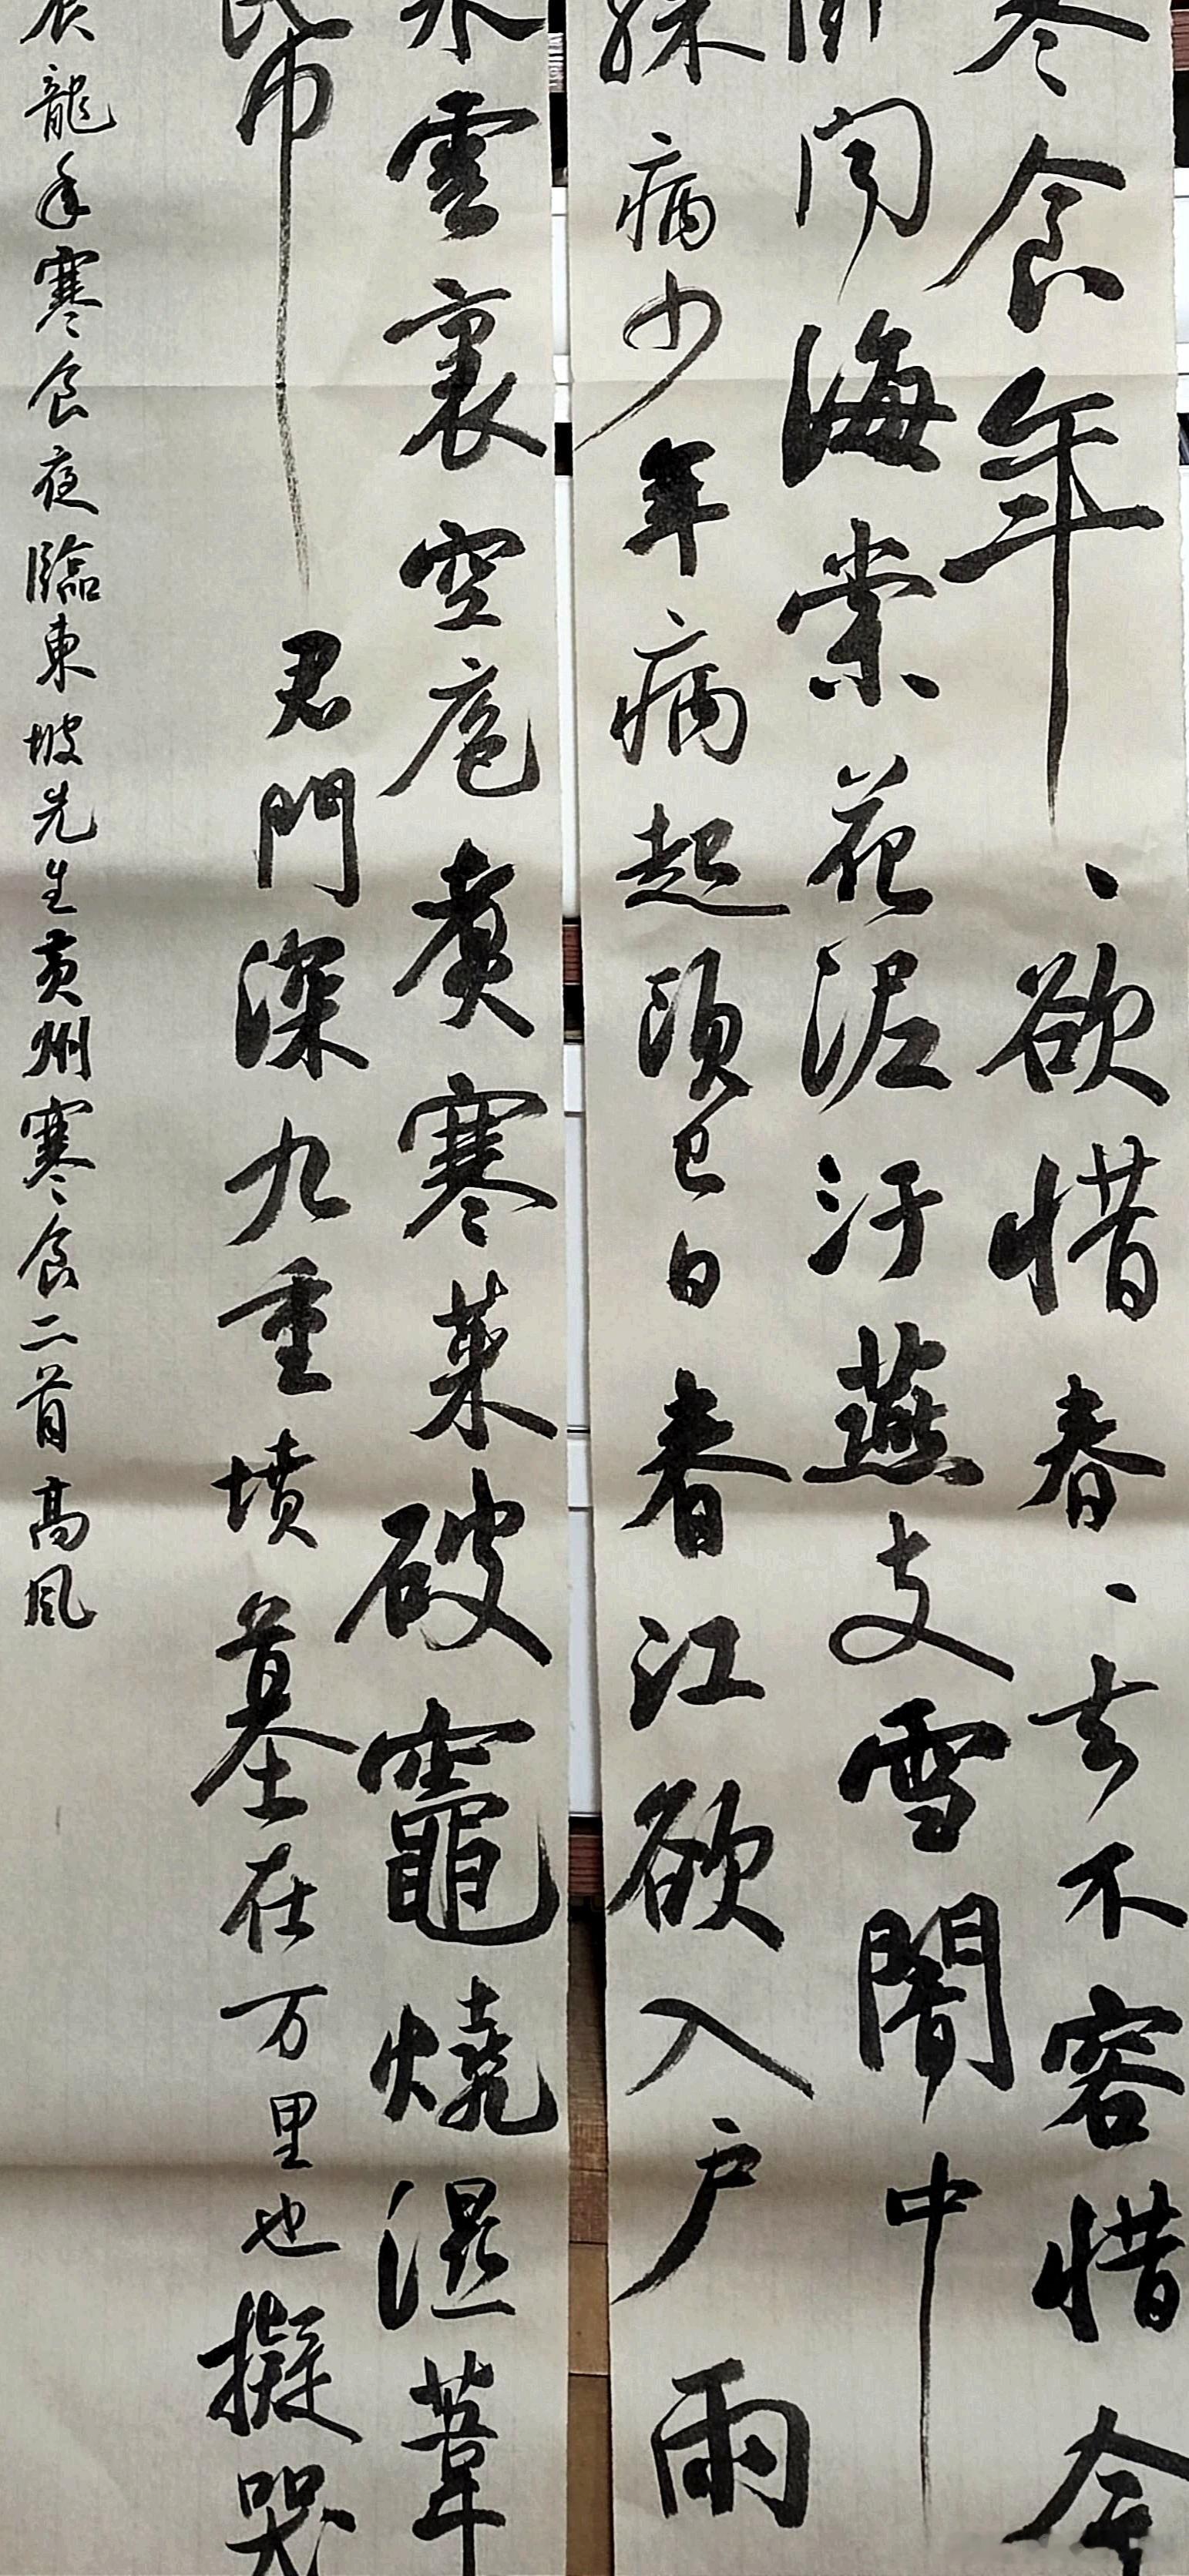 寒食年丶欲惜春丶去不容惜今
聞海棠花泥汙燕支雪闇中
殊病少年病起頭已白春江欲入户雨
水雲裏空庖煮寒菜破竈燒濕葦
帋君門深九重墳墓在万里也擬哭
辰龍年寒食夜臨東坡先生黄州寒食二首高风